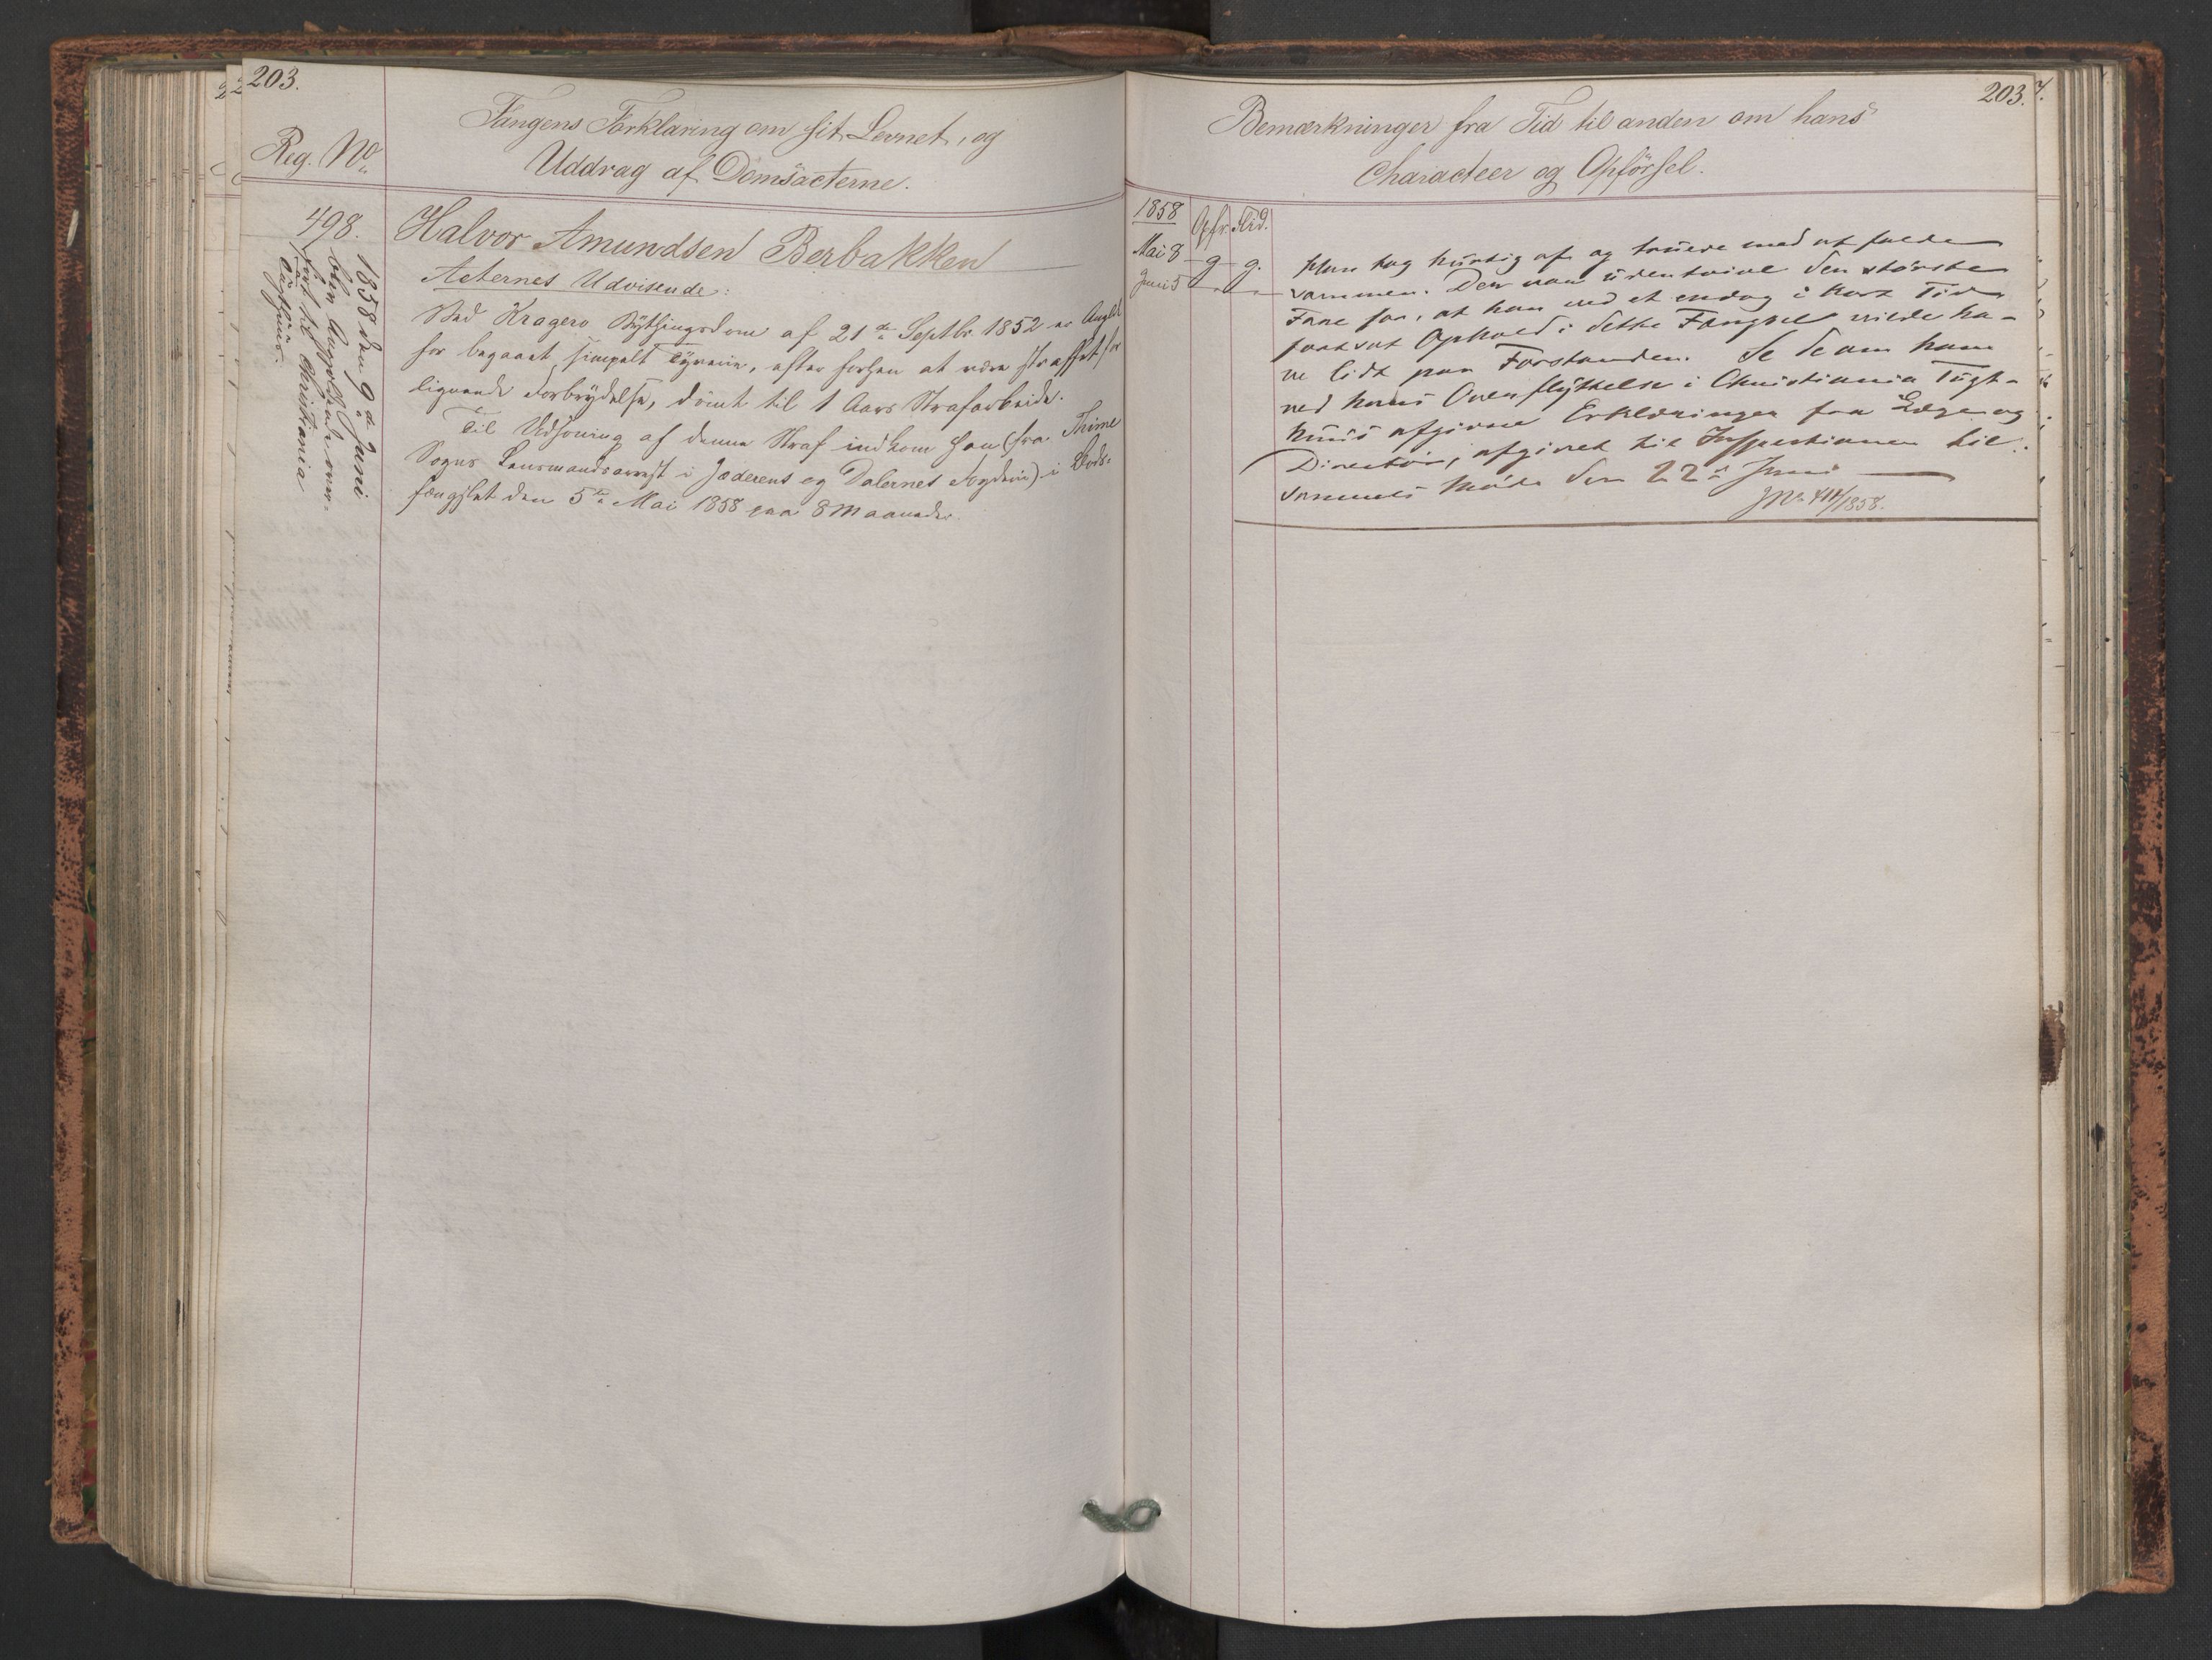 203.
Reg. No
Fangens Forklaring om sit Levnet, og
Uddrag af Domsacterne.
498.
1858 den 9de Juni
blev Angjeldende over-
ført til Christiania
Tugthuus.
Halvor Amundsen Berbakken
Acternes Udvisende:
Ved Kragerø Bythingsdom af 21de Septbr. 1852 er Angjeld
for begaaet simpelt Tyverie, efter forhen at være straffet for
lignende Forbrydelse, dømt til 1 Aars Strafarbeide.
Til Udsoning af denne Straf indkom han (fra Thime
Sogns Lensmandsarrest i Jæderens og Dalernes Fogderie) i Bods-
fængslet den 5te Mai 1858 paa 8 Maaneder.
203.
Bemærkninger fra Tid til anden om hans
Characteer og Opførsel.
1858 Opf. Flid.
Mai 8 g g.
Juni 5 " "
Han tog hurtig af og truede med at falde
sammen. Der var udentvivl den største
Fare for, at han ved et endog i kort Tid
fortsat Ophold i dette Fængsel vilde ha-
ve lidt paa Forstanden. Se de om ham
ved hans Overflyttelse i Christiania Tugt-
huus afgivne Erklæringer fra Læge og
Directør, afgivet til Inspectionen til
sammets Møde den 22de Juni
JNo 411/1858.